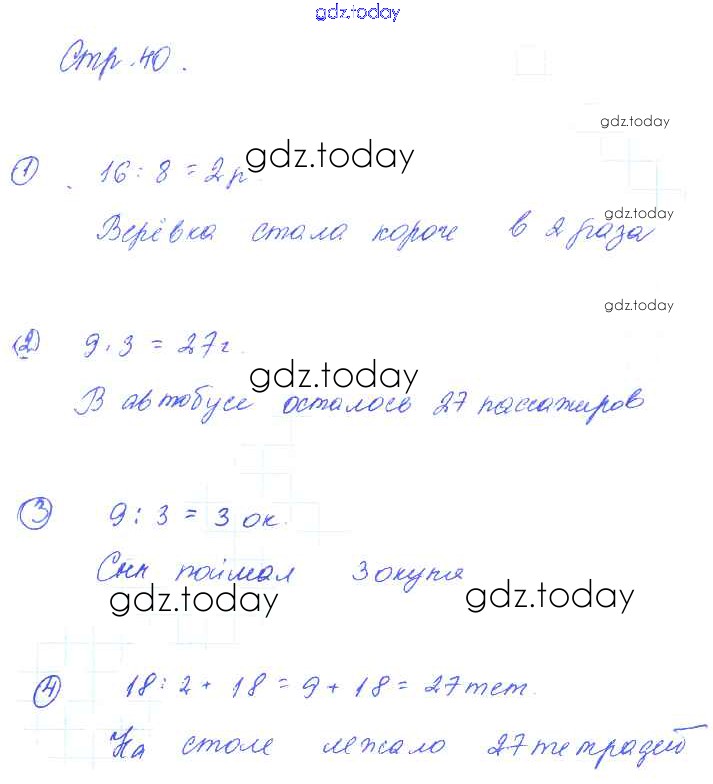 gdz.today
Стр. 40.
gdz.today
① 16 : 8 = 2 р. gdz.today
gdz.today
Верёвка стала короче в 2 раза
gdz.today
② 9 . 3 = 27 г.
gdz.today
В автобусе осталось 27 пассажиров
③ 9 : 3 = 3 ок.
Сын поймал 3 окуня
gdz.today gdz.today
④ 18 : 2 + 18 = 9 + 18 = 27 тет.
На столе лежало 27 тетрадей